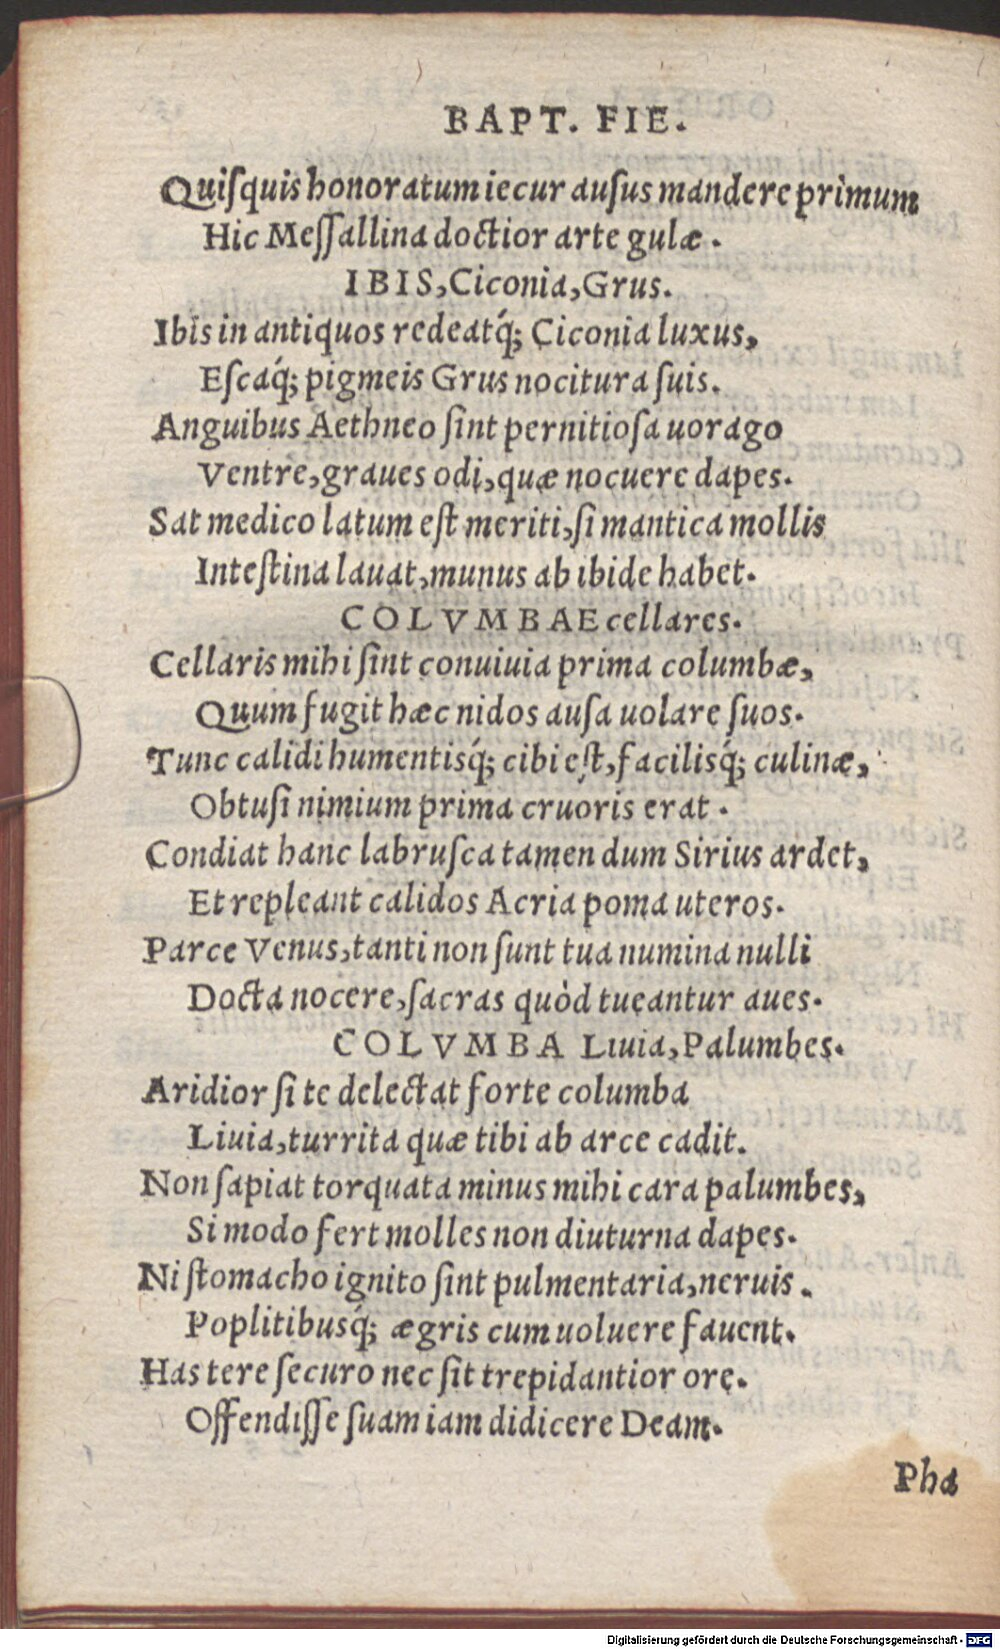 BAPT. FIE.
Quiſquis honoratum iecur auſus mandere primum
Hic Meſſallina doctior arte gulæ.
IBIS, Ciconia, Grus.
Ibis in antiquos redeatq́; Ciconia luxus,
Eſcaq́; pigmeis Grus nocitura ſuis.
Anguibus Aethneo ſint pernitioſa uorago
Ventre, graues odi, quæ nocuere dapes.
Sat medico latum eſt meriti, ſi mantica mollis
Inteſtina lauat, munus ab ibide habet.
COLVMBAE cellares.
Cellaris mihi ſint conuiuia prima columbæ,
Quum fugit hæc nidos auſa uolare ſuos.
Tunc calidi humentisq́; cibi eſt, facilisq́; culinæ,
Obtuſi nimium prima cruoris erat.
Condiat hanc labruſca tamen dum Sirius ardet,
Et repleant calidos Acria poma uteros.
Parce Venus, tanti non ſunt tua numina nulli
Docta nocere, ſacras quòd tueantur aues.
COLVMBA Liuia, Palumbes.
Aridior ſi te delectat forte columba
Liuia, turrita quæ tibi ab arce cadit.
Non ſapiat torquata minus mihi cara palumbes,
Si modo fert molles non diuturna dapes.
Ni ſtomacho ignito ſint pulmentaria, neruis.
Poplitibusq́; ægris cum uoluere fauent.
Has tere ſecuro nec ſit trepidantior ore.
Offendiſſe ſuam iam didicere Deam.
Pha
Digitalisierung gefördert durch die Deutsche Forschungsgemeinschaft - DFG